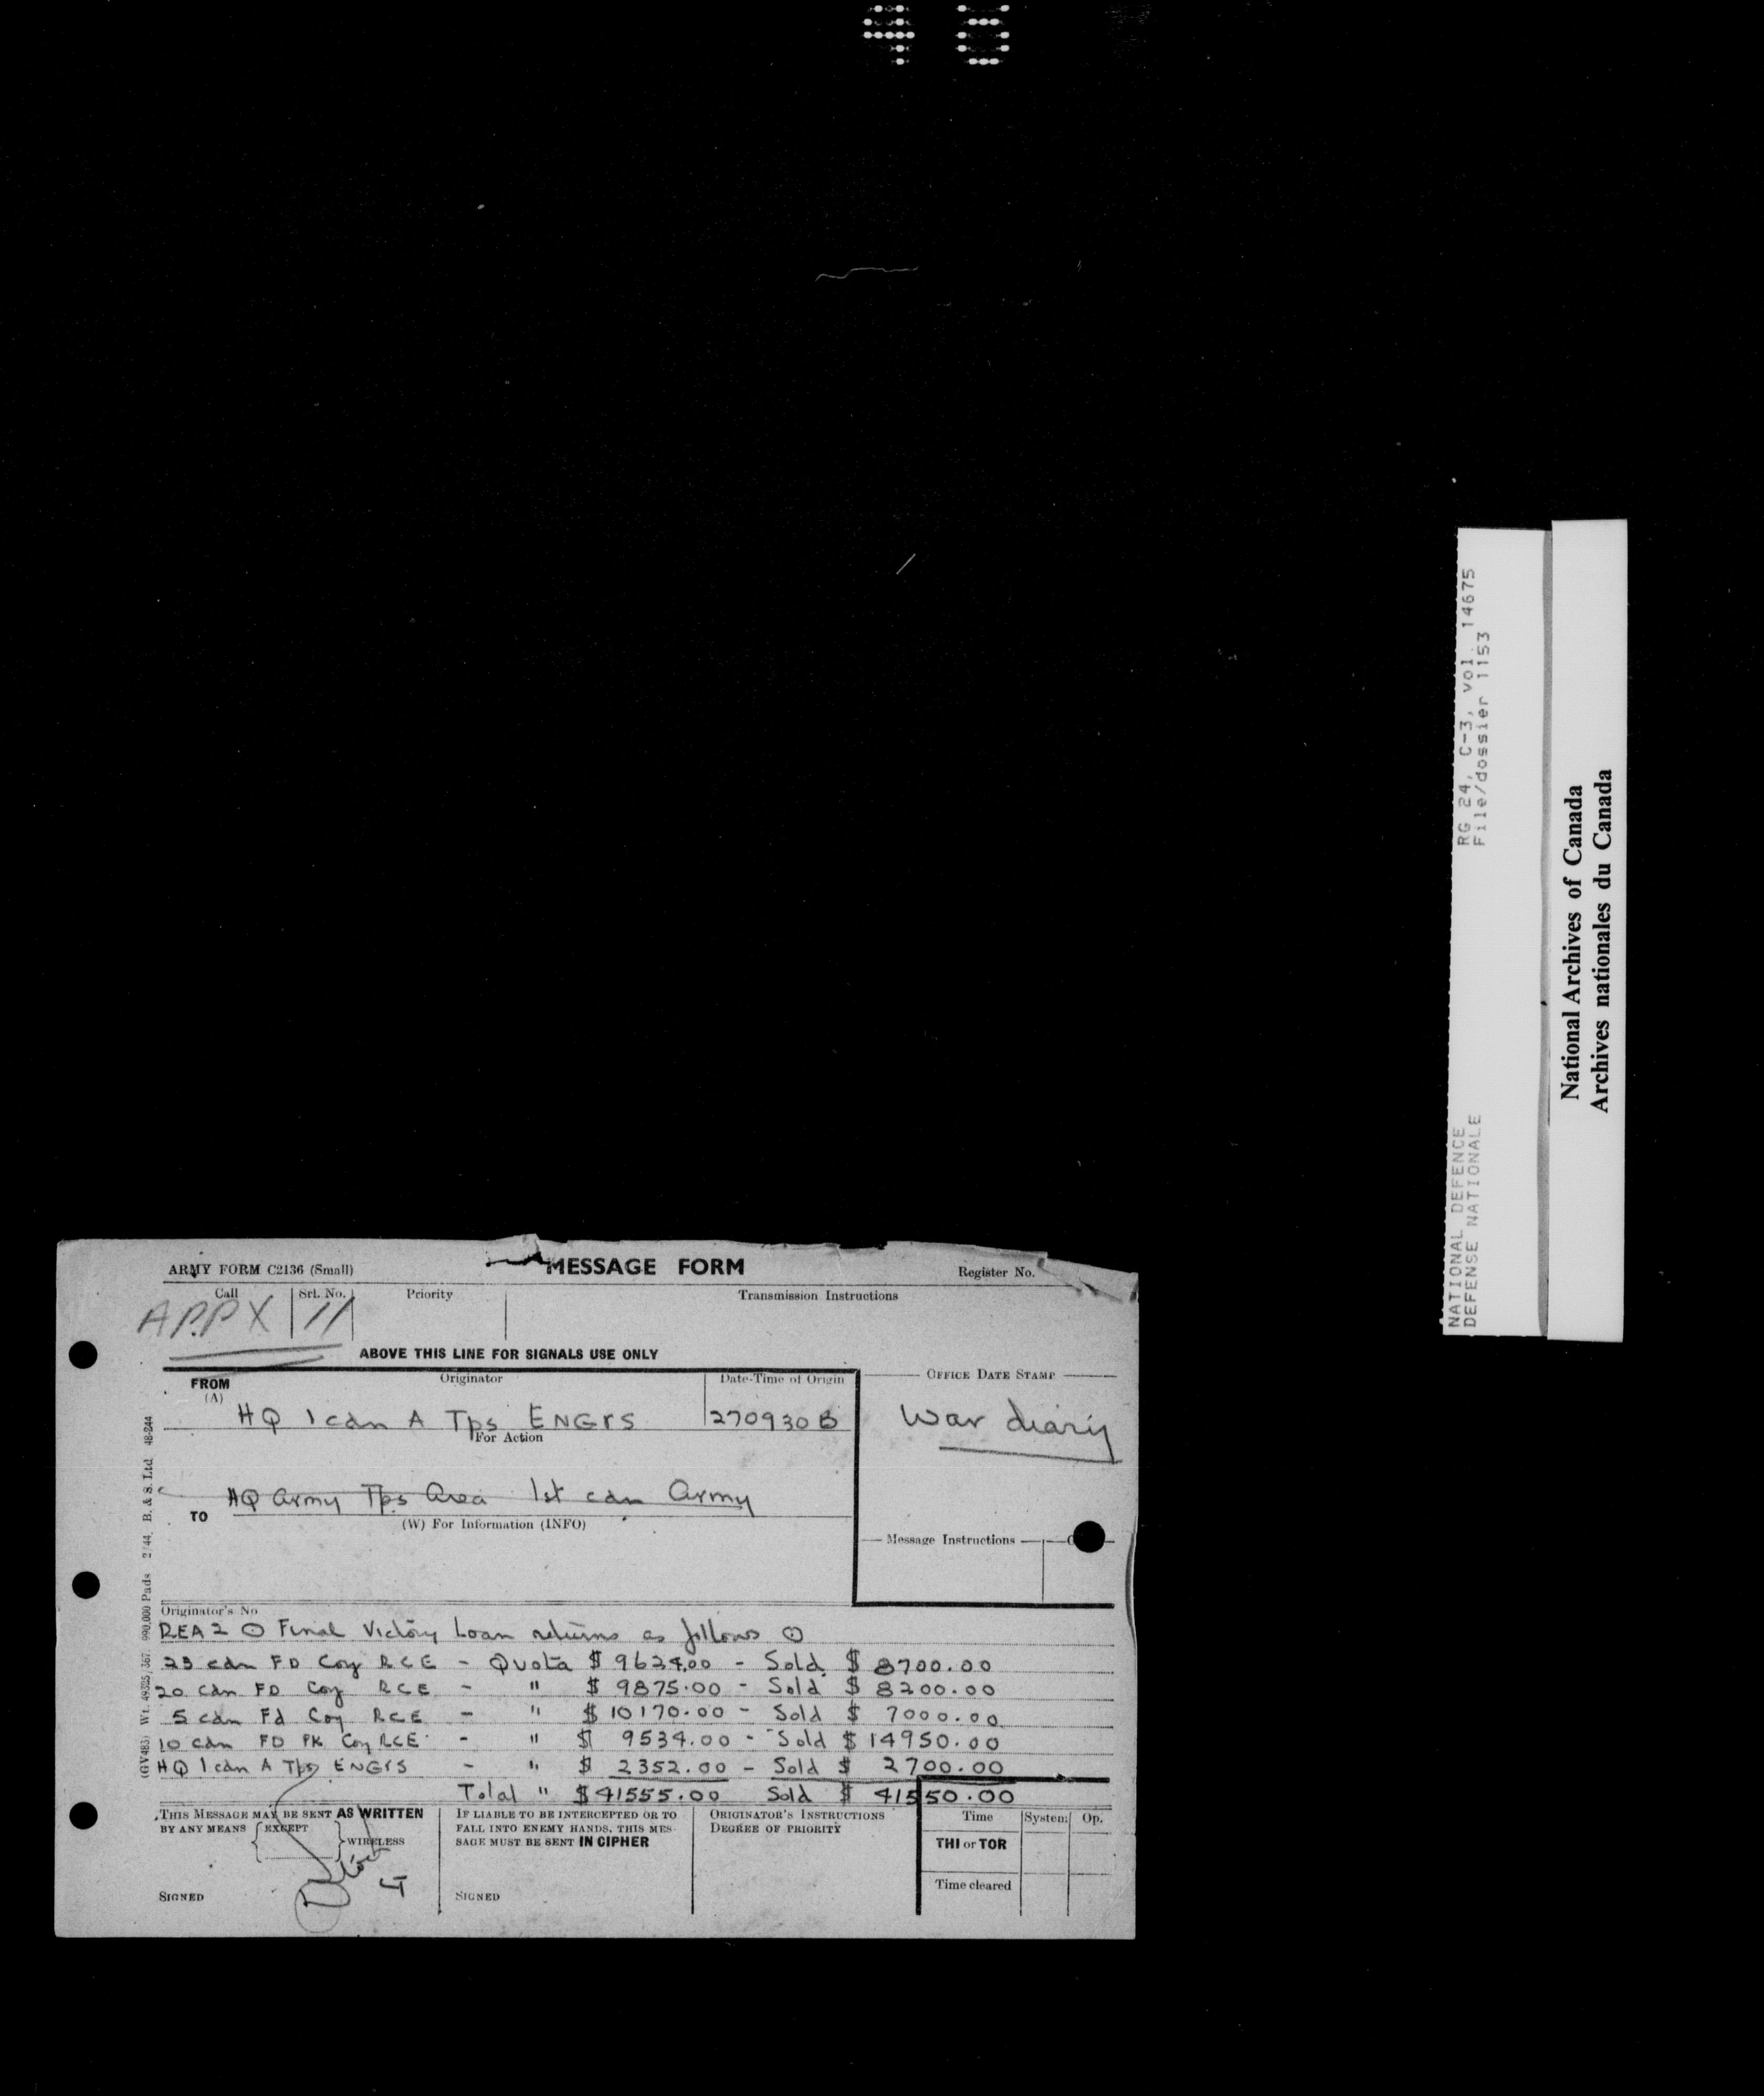 40
RG 24, C-3, vol. 14675
File/dossier 1153
NATIONAL DEFENCE
DEFENSE NATIONALE
National Archives of Canada
Archives nationales du Canada
ARMY FORM C2136 (Small)
MESSAGE FORM
Register No.
Call
Srl. No.
Priority
Transmission Instructions
APPX 11
ABOVE THIS LINE FOR SIGNALS USE ONLY
FROM
(A)
Originator
Date-Time of Origin
OFFICE DATE STAMP
HQ 1 cdn A Tps ENGrS
270930B
War diary
For Action
HQ Army Tps Area 1st cdn Army
TO
(W) For Information (INFO)
Message Instructions
(GV483) Wt. 49325/367. 990,000 Pads 2/44. B. & S. Ltd. 48-244
Originator's No
REA 2 ⊙ Final Victory Loan returns as follows ⊙
23 cdn FD Coy RCE - Quota $ 9624.00 - Sold $ 8700.00
20 cdn FD Coy RCE - " $ 9875.00 - Sold $ 8200.00
5 cdn Fd Coy RCE - " $ 10170.00 - Sold $ 7000.00
10 cdn FD PK Coy RCE - " $ 9534.00 - Sold $ 14950.00
HQ 1 cdn A Tps ENGrS - " $ 2352.00 - Sold $ 2700.00
Total " $ 41555.00 Sold $ 41550.00
THIS MESSAGE MAY BE SENT AS WRITTEN
BY ANY MEANS EXCEPT WIRELESS
SIGNED
IF LIABLE TO BE INTERCEPTED OR TO
FALL INTO ENEMY HANDS, THIS MES-
SAGE MUST BE SENT IN CIPHER
SIGNED
ORIGINATOR'S INSTRUCTIONS
DEGREE OF PRIORITY
Time
System
Op.
THI or TOR
Time cleared